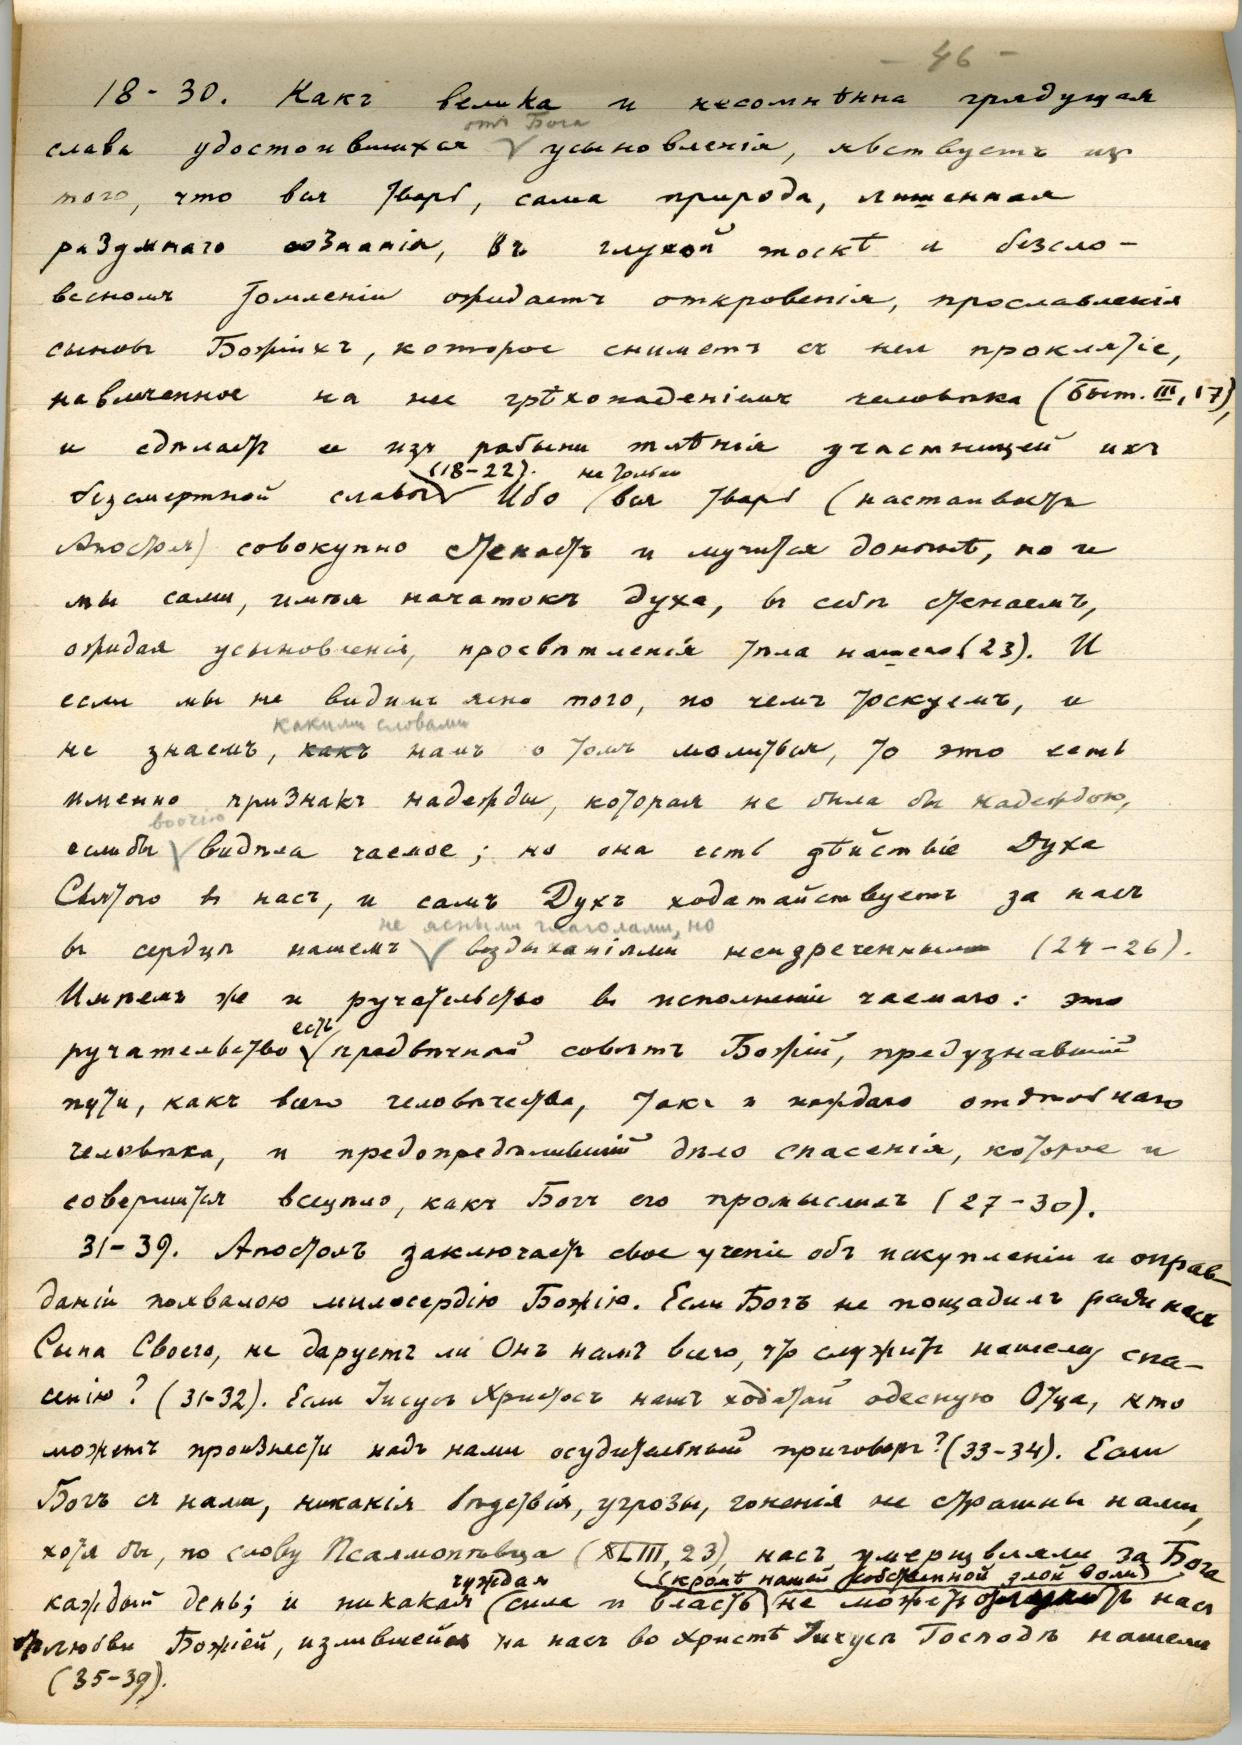 - 46 -
18-30. Какъ велика и несомнѣнна грядущая
отъ Бога
слава удостоившихся усыновленія, явствуетъ изъ
того, что вся тварь, сама природа, лишенная
разумнаго сознанія, въ глухой тоскѣ и безсло-
весномъ томленіи ожидаетъ откровенія, прославленія
сыновъ Божіихъ, которое сниметъ съ нея проклятіе,
навлеченное на нее грѣхопаденіемъ человѣка (Быт. III, 17),
и сдѣлаетъ ее изъ рабыни тлѣнія участницей ихъ
(18-22). не только
безсмертной славы Ибо вся тварь (настаиваетъ
Апостолъ) совокупно стенаетъ и мучится донынѣ, но и
мы сами, имѣя начатокъ Духа, въ себѣ стенаемъ,
ожидая усыновленія, просвѣтленія тѣла нашего (23). И
если мы не видимъ ясно того, по чемъ тоскуемъ, и
какими словами
не знаемъ, какъ намъ о томъ молиться, то это есть
именно признакъ надежды, которая не была бы надеждою,
воочію
еслибы видѣла чаемое; но она есть дѣйствіе Духа
Святого въ насъ, и самъ Духъ ходатайствуетъ за насъ
не ясными глаголами, но
въ сердцѣ нашемъ воздыханіями неизреченными (24-26).
Имѣемъ же и ручательство въ исполненіи чаемаго: это
есть
ручательство предвѣчный совѣтъ Божій, предузнавшій
пути, какъ всего человѣчества, такъ и каждаго отдѣльнаго
человѣка, и предопредѣлившій дѣло спасенія, которое и
совершится всецѣло, какъ Богъ его промыслилъ (27-30).
31-39. Апостолъ заключаетъ свое ученіе объ искупленіи и оправ-
даніи похвалою милосердію Божію. Если Богъ не пощадилъ ради насъ
Сына Своего, не даруетъ ли Онъ намъ всего, что служитъ нашему спа-
сенію? (31-32). Если Іисусъ Христосъ нашъ ходатай одесную Отца, кто
можетъ произнести надъ нами осудительный приговоръ? (33-34). Если
Богъ съ нами, никакія бѣдствія, угрозы, гоненія не страшны намъ,
хотя бы, по слову Псалмопѣвца (XLIII, 23), насъ умерщвляли за Бога
чуждая (кромѣ нашей собственной злой воли)
каждый день; и никакая сила и власть не можетъ насъ
отъ любви Божіей, излившейся на насъ во Христѣ Іисусѣ Господѣ нашемъ
(35-39).